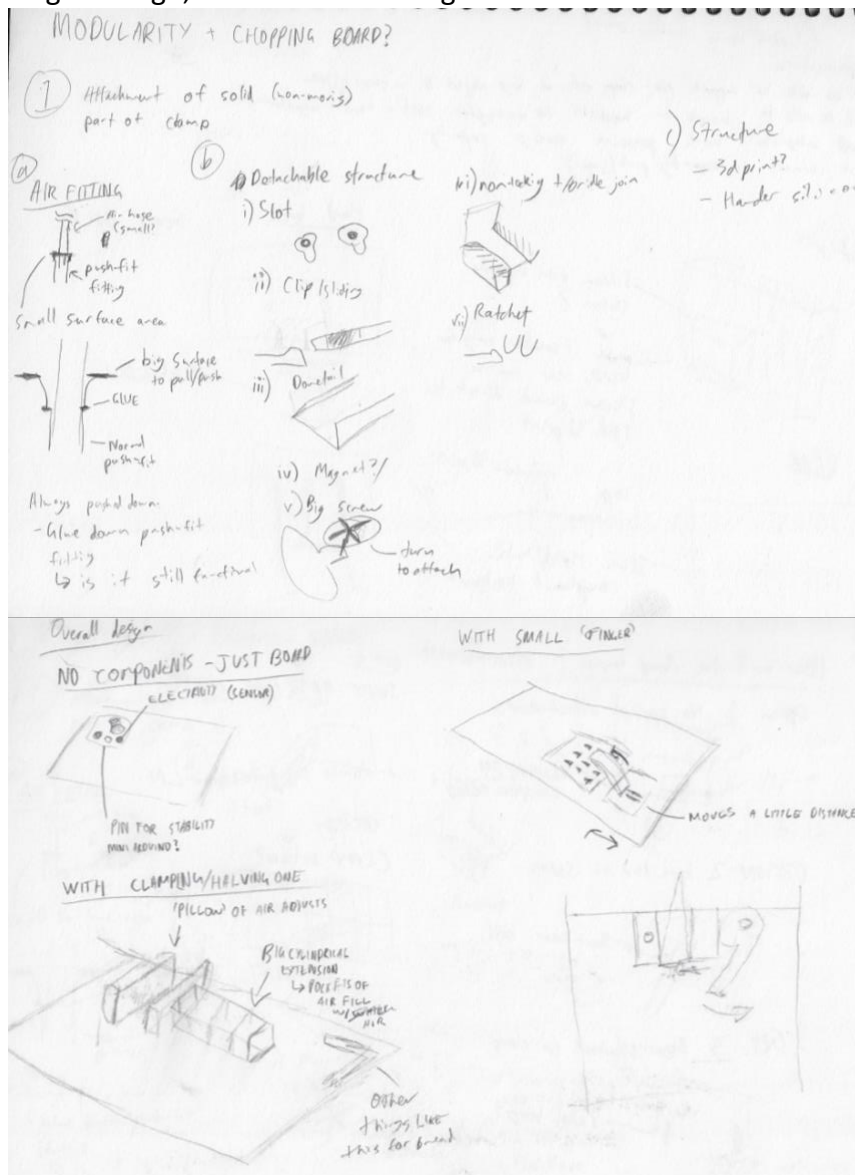 MODULARITY + CHOPPING BOARD?
1 Attachment of solid (non-moving)
part of clamp
a
AIR FITTING
Air hose
(small?
push-fit
fitting
small surface area
big surface
to pull/push
GLUE
Normal
push-fit
Always pushed down
- Glue down push-fit
fitting
↳ is it still functional
b
Detachable structure
i) Slot
ii) Clip/sliding
iii) Dovetail
iv) Magnet?/
v) Big screw
turn
to attach
join
vii) Ratchet
c) Structure
- 3d print?
- Harder
Overall design
NO COMPONENTS - JUST BOARD
ELECTRICITY (SENSOR)
PIN FOR STABILITY
MINI ARDUINO?
WITH CLAMPING/HALVING ONE
'PILLOW' OF AIR ADJUSTS
BIG CYLINDRICAL
EXTENSION
↳ POCKETS OF
AIR FILL
AIR
Other
things like
this for bread
WITH SMALL (FINGER)
MOVES A LITTLE DISTANCE